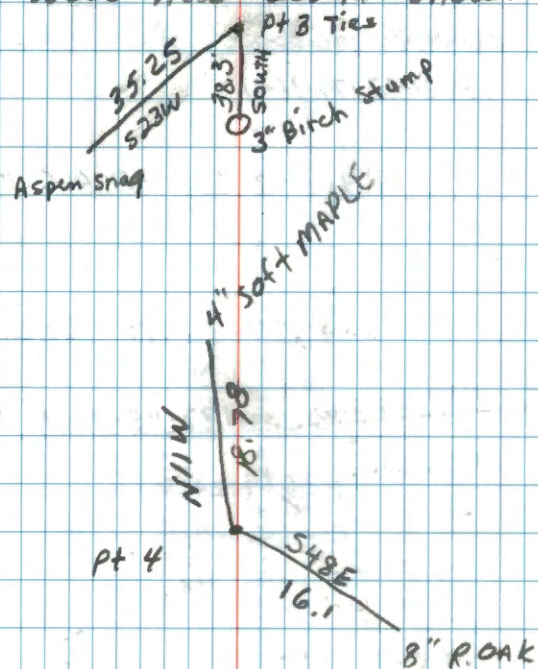 Pt 3 Ties
35.25
S23W
38.3
South
3" Birch Stump
Aspen Snag
4" Soft MAPLE
N11W
18.78
Pt 4
S48E
16.1
8" R. OAK